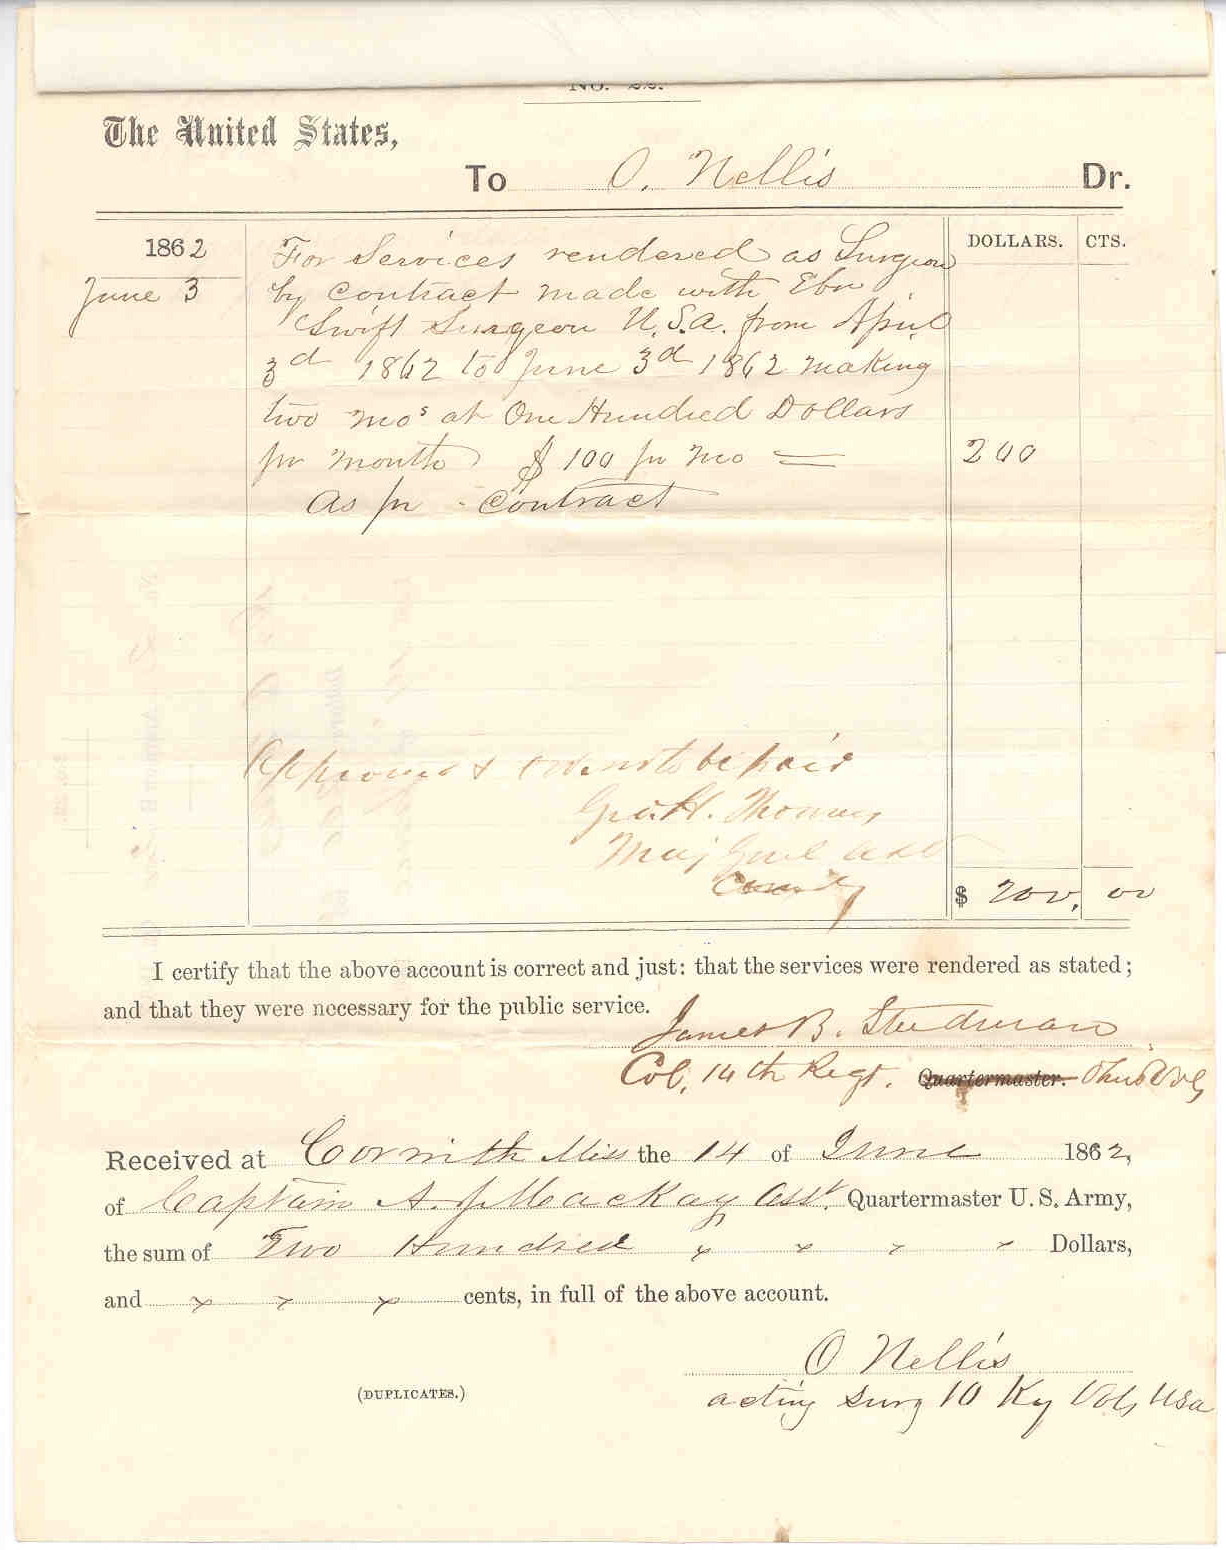 No. 22.
The United States,
To O. Nellis Dr.
1862 DOLLARS. CTS.
June 3 For Services rendered as Surgeon
by contract made with Eben
Swift Surgeon U.S.A. from April
3d 1862 to June 3d 1862 making
two mos at One Hundred Dollars
pr month $100 pr mo = 200
As pr - Contract
Approved & to be paid
Geo. H. Thomas
Maj Genl
Comdg
$ 200. 00
I certify that the above account is correct and just: that the services were rendered as stated;
and that they were necessary for the public service.
James B. Steedman
Col, 14th Regt. Quartermaster. Ohio Vols
Received at Corinth Miss the 14 of June 1862,
of Captain A. J. Mackay Asst. Quartermaster U. S. Army,
the sum of Two Hundred Dollars,
and cents, in full of the above account.
O Nellis
(DUPLICATES.)
acting Surg 10 Ky Vols USA